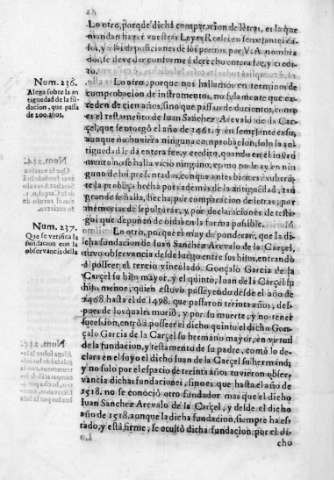 Lo otro, porque dicha comprobacion de letras, es la que
mandan hazer vuestras Leyes Reales en semejantes ca-
sos, y a las disposiciones de los peritos por V. A. nombra-
dos, se deve dar conforme à derecho entera fee, y credi-
to.
Num. 236.
Alega sobre la an
tiguedad de la fū-
dacion, que passa
de 200. años.
Lo otro, porque nos hallamos en termino de
comprobacion de instrumento, no solamente que ex-
ceden de cien años, sino que passan de ducientos, como
es el testamento de Juan Sanchez Arevalo de la Car-
çel, que se otorgò el año de 1461. y en semejante caso,
aunque no huviera ninguna comprobacion, solo la an-
tiguedad le dà entera fee, y credito, quando en el instru-
mento no se halla vicio ninguno, como no le ay en
guno de los presentados, quanto mas aviendose
la probança hecha por ademàs de la antiguedad,
grande fee, hecha, por comparacion de letras, por
memorias de sepulturas, y por declaraciones de testi-
gos que deponen de oidas en la forma possible.
Num. 237.
Que se verifica la
fundacion con la
observancia della
Lo otro, porque es muy de ponderar, que la di-
cha fundacion de Juan Sanchez Arevalo de la Carçel,
tuvo observancia desde luego entre sus hijos, entran-
dò possèer el tercio vinculado Gonçalo Garcia de la
Carçel su hijo mayor, y el quinto, Juan de la Carçel su
hijo menor, quien estuvo posseyendo desde el año de
1468. hasta el de 1498. que passaron treinta años, des-
pues de los quales muriò, y por su muerte, y no tener
succession, entrò à posseer el dicho quinto el dicho Gon-
çalo Garcia de la Carçel su hermano mayor, en virtud
de la fundacion, y testamento de su padre, como lo de-
clara en el suyo el dicho Juan de la Carçel su hermano,
y no solo por el espacio de treinta años tuvieron obser-
vancia dichas fundaciones, sino es que hasta el año de
1518. no se conociò otro fundador mas que el dicho
Juan Sanchez Arevalo de la Carçel, y desde el dicho
año de 1518. aunque la dicha fundacion, siempre ha es-
tado, y està firme, se ocultò dicha fundacion por el di-
cho